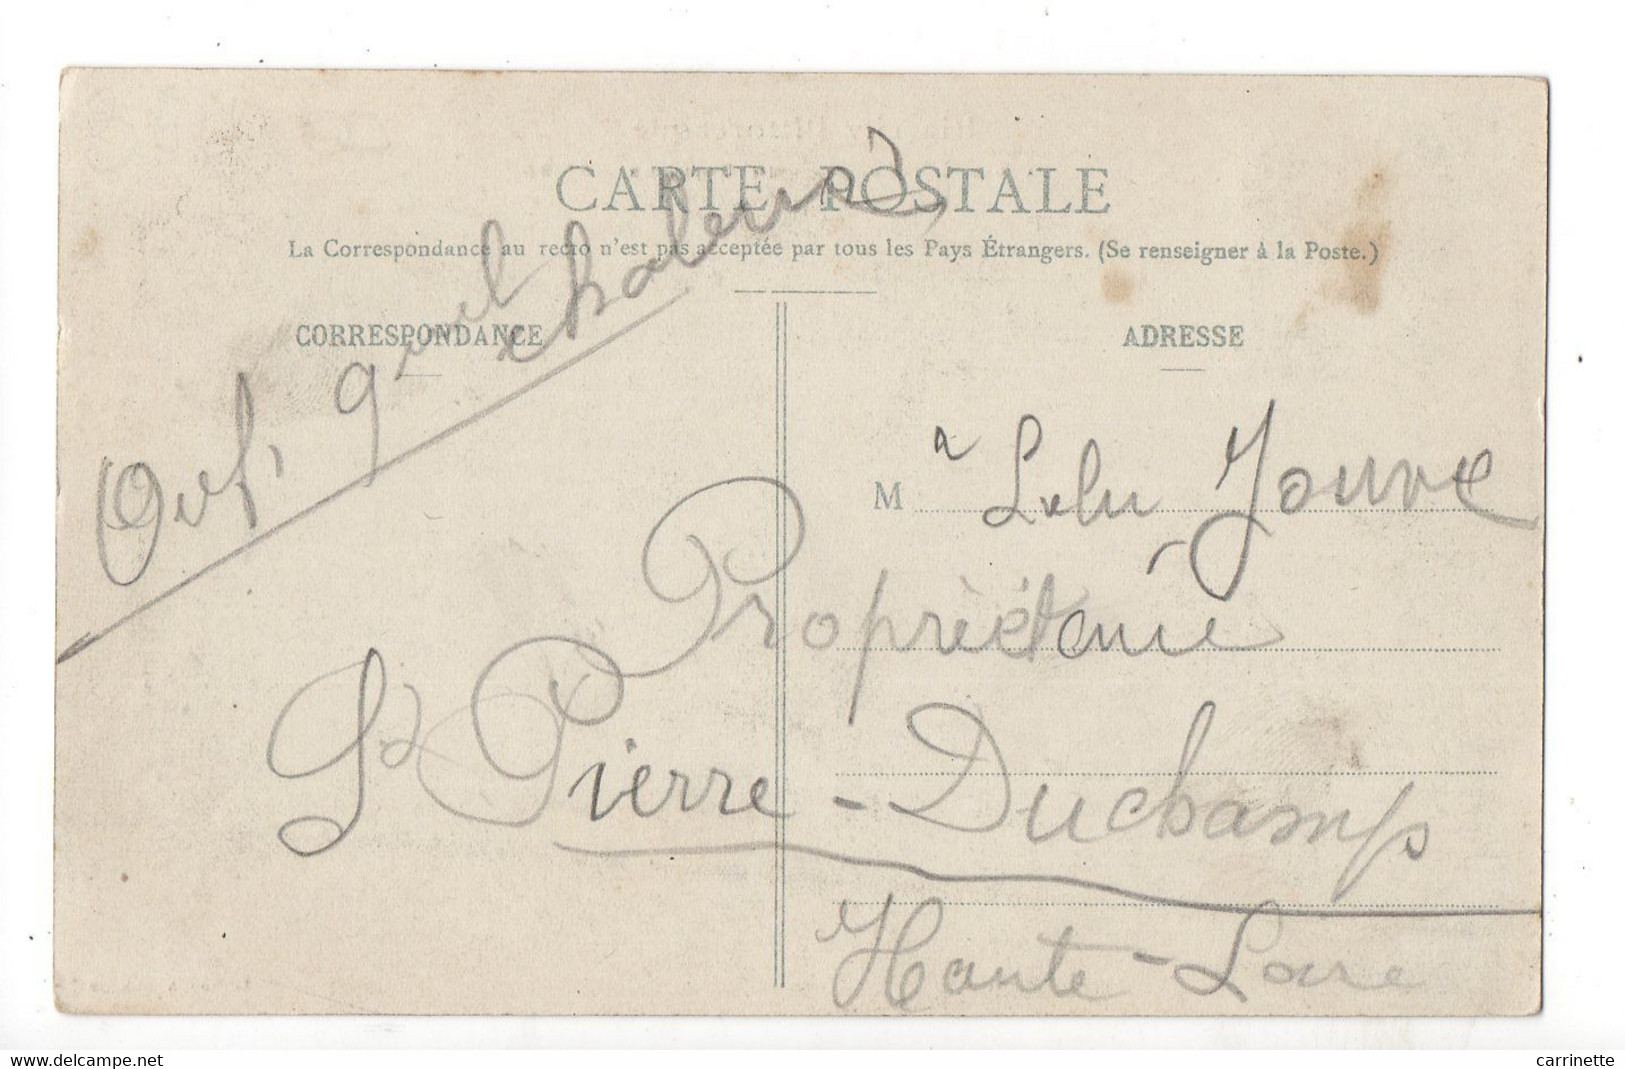 CARTE POSTALE
La Correspondance au recto n'est pas acceptée par tous les Pays Étrangers. (Se renseigner à la Poste.)
CORRESPONDANCE
ADRESSE
M Jouve
Propriètaire
St Pierre - Duchamp
Haute - Loire
www.delcampe.net
carrinette